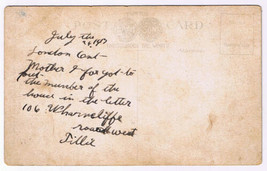 POST CARD
July the
London Ont-
Mother I forgot to
put the number of the
house in the letter
106 Wharncliffe
road west
Tillie